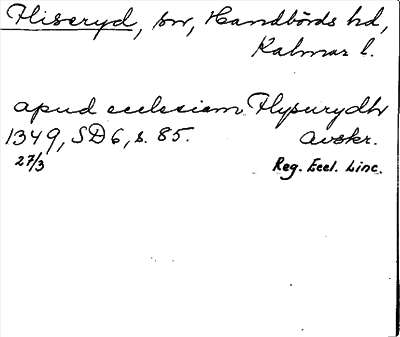 Fliseryd, sn, Handbörds hd,
Kalmar l.
apud ecclesiam Flysurydhr
1349, SD 6, s. 85. avskr.
27/3 Reg. Eccl. Linc.